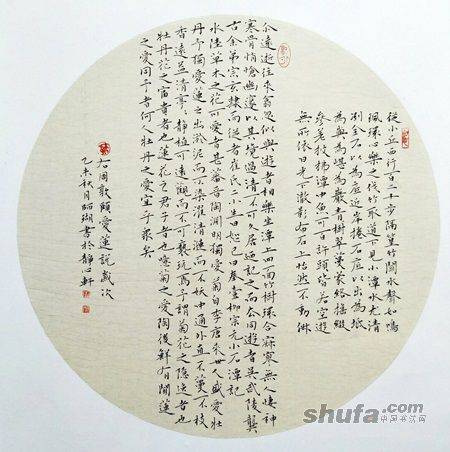 從小丘西行百二十步隔篁竹聞水聲如鳴
珮環心樂之伐竹取道下見小潭水尤清
冽全石以為底近岸捲石底以出為坻
為嶼為嵁為巖青樹翠蔓蒙絡搖綴
參差披拂潭中魚可百許頭皆若空遊
無所依日光下澈影布石上怡然不動俶
尒遠逝往來翕忽似與遊者相樂坐潭上四面竹樹環合寂寥無人凄神
寒骨悄愴幽邃以其境過清不可久居迺記之而去同遊者吳武陵龔
古余弟宗玄隸而從者崔氏二小生曰恕己曰奉壹柳宗元小石潭記
水陸草木之花可愛者甚蕃晉陶淵明獨愛菊自李唐來世人盛愛壯
丹予獨愛蓮之出淤泥而不染濯清漣而不妖中通外直不蔓不枝
香遠益清亭亭靜植可遠觀而不可褻玩焉予謂菊花之隱逸者也
牡丹花之富貴者也蓮花之君子者也噫菊之愛陶後鮮有聞蓮
之愛同予者何人牡丹之愛宜乎衆矣
右周敦頤愛蓮說歲次
乙未秋月瑚書於靜心軒
shufa.com
中国书法网